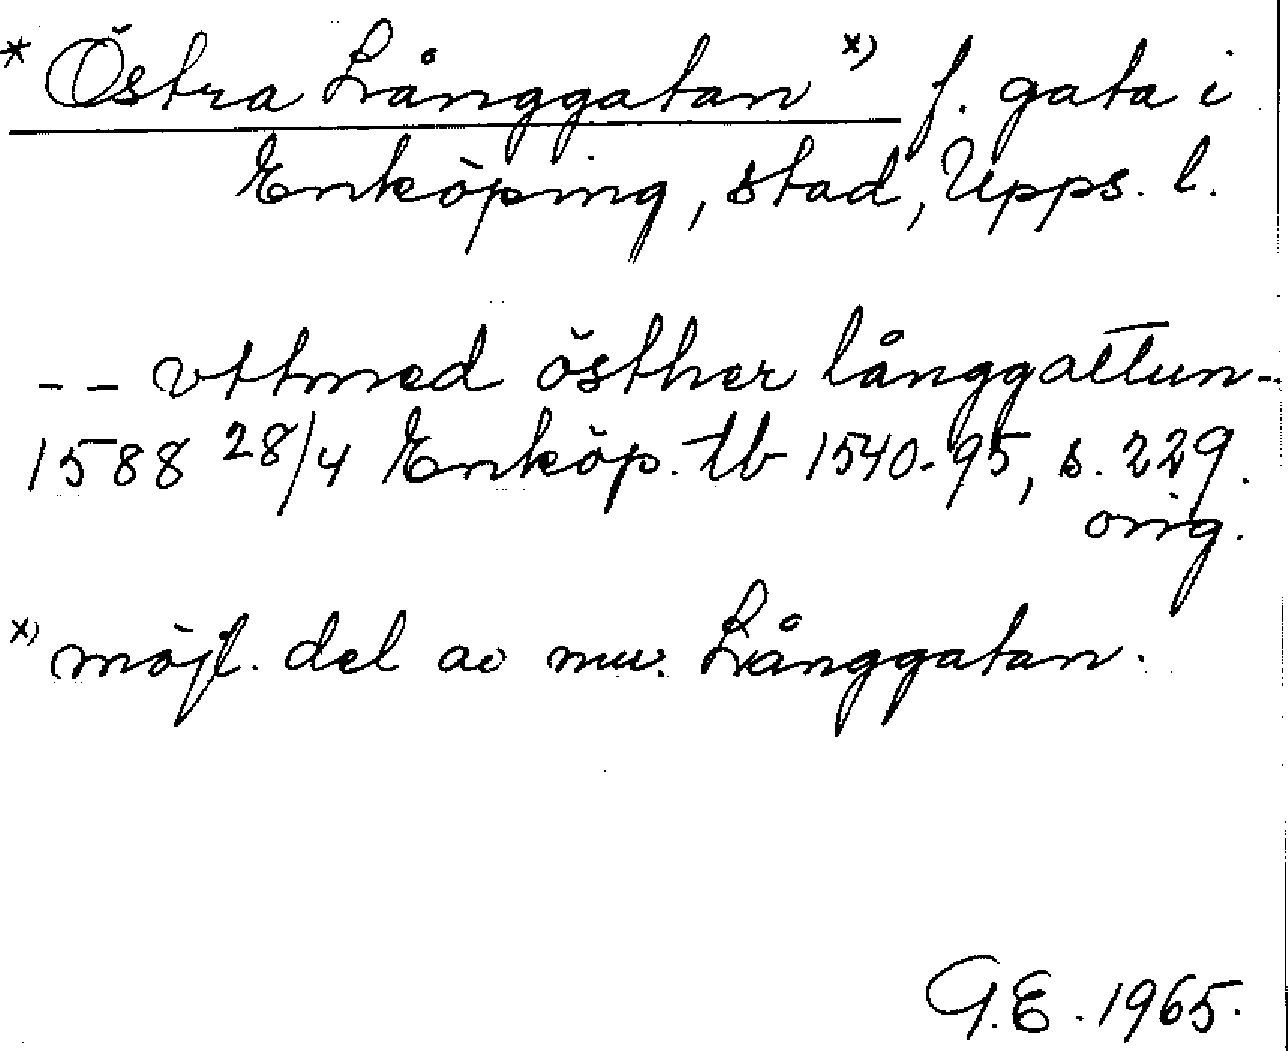 * Östra Långgatan x) f. gata i
Enköping, stad, Upps. l.
-- vttmed östher långgattun--
1588 28/4 Enköp. tb 1540-95, s. 229.
orig.
x) möjl. del av nuv. Långgatan.
G.E. 1965.